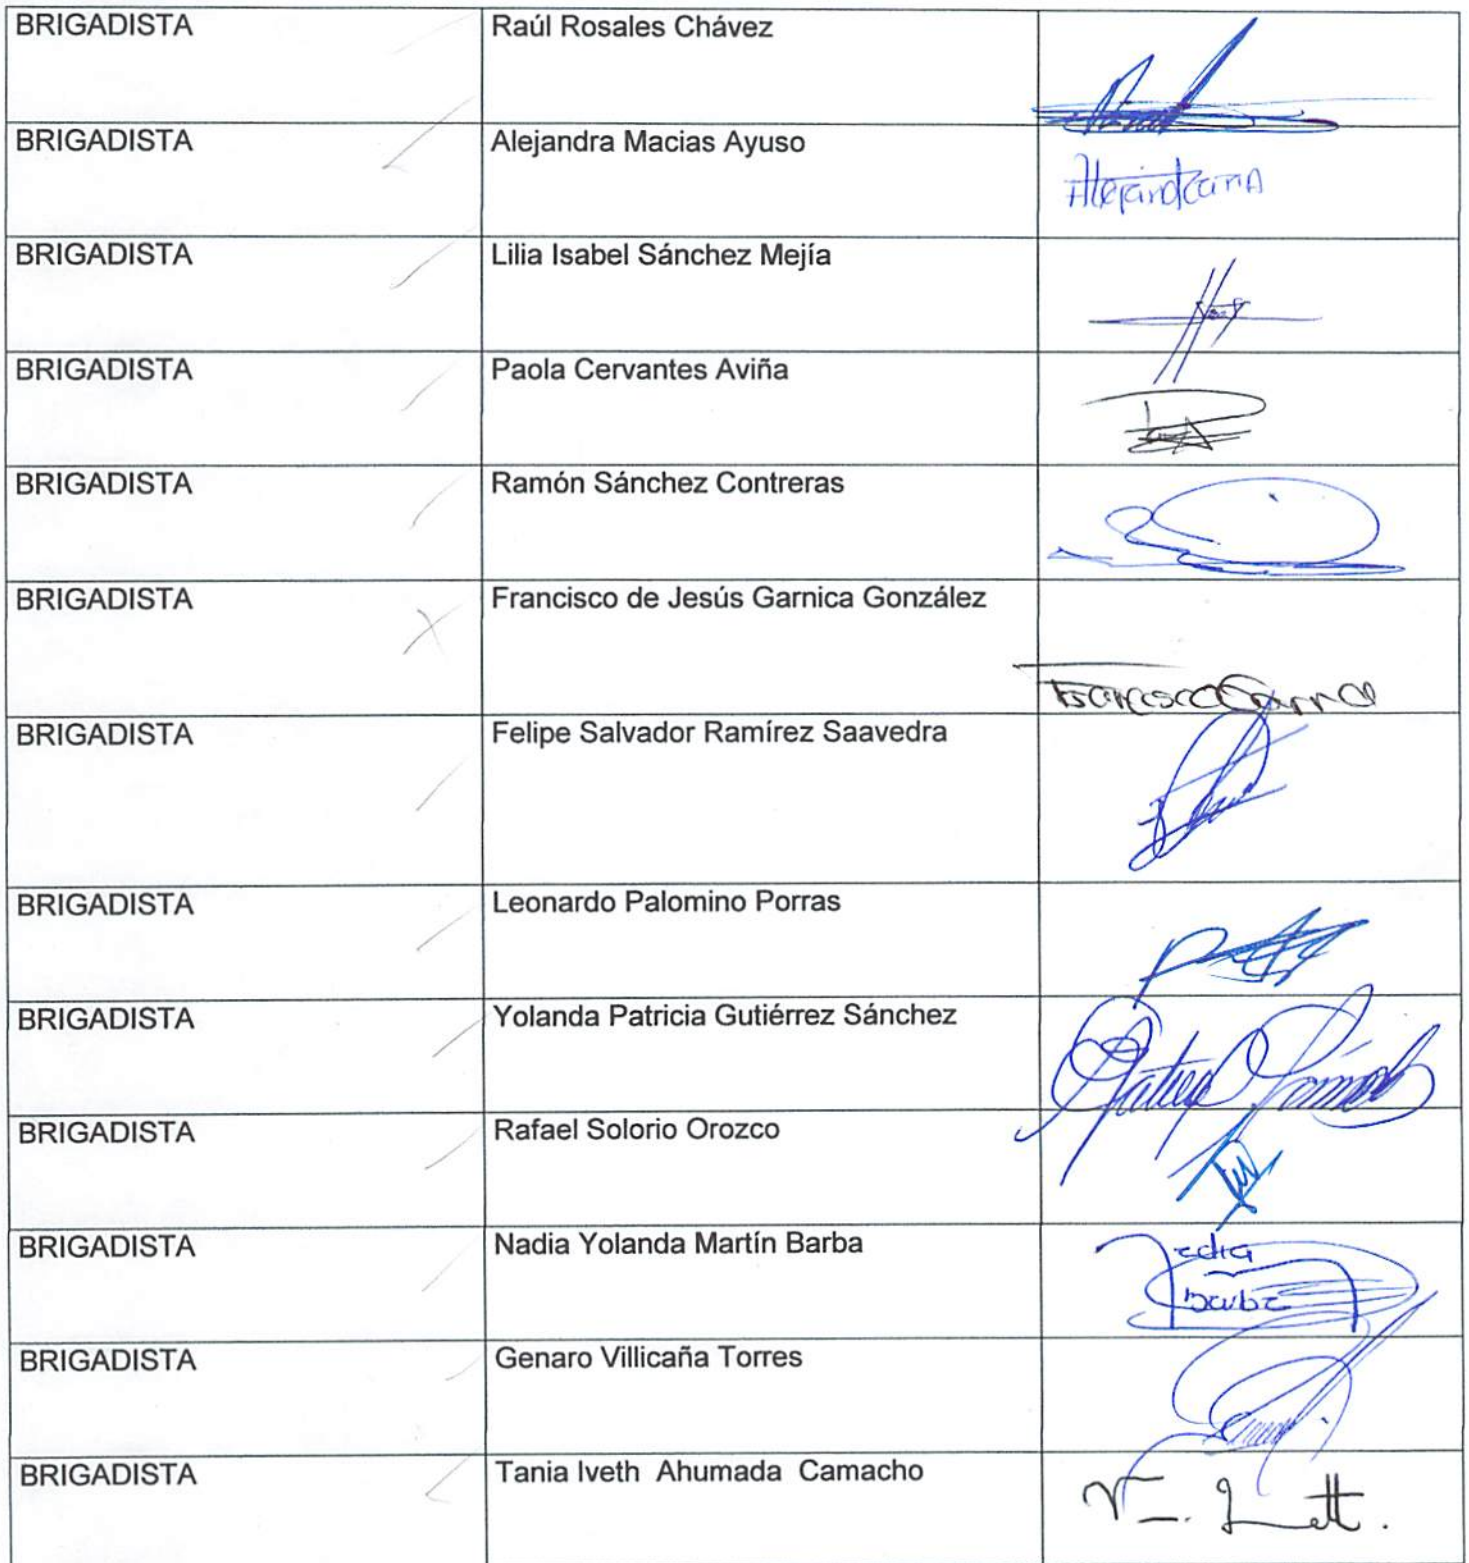 BRIGADISTA Raúl Rosales Chávez
BRIGADISTA Alejandra Macias Ayuso
BRIGADISTA Lilia Isabel Sánchez Mejía
BRIGADISTA Paola Cervantes Aviña
BRIGADISTA Ramón Sánchez Contreras
BRIGADISTA Francisco de Jesús Garnica González
BRIGADISTA Felipe Salvador Ramírez Saavedra
BRIGADISTA Leonardo Palomino Porras
BRIGADISTA Yolanda Patricia Gutiérrez Sánchez
BRIGADISTA Rafael Solorio Orozco
BRIGADISTA Nadia Yolanda Martín Barba
Nadia
Barba
BRIGADISTA Genaro Villicaña Torres
BRIGADISTA Tania Iveth Ahumada Camacho